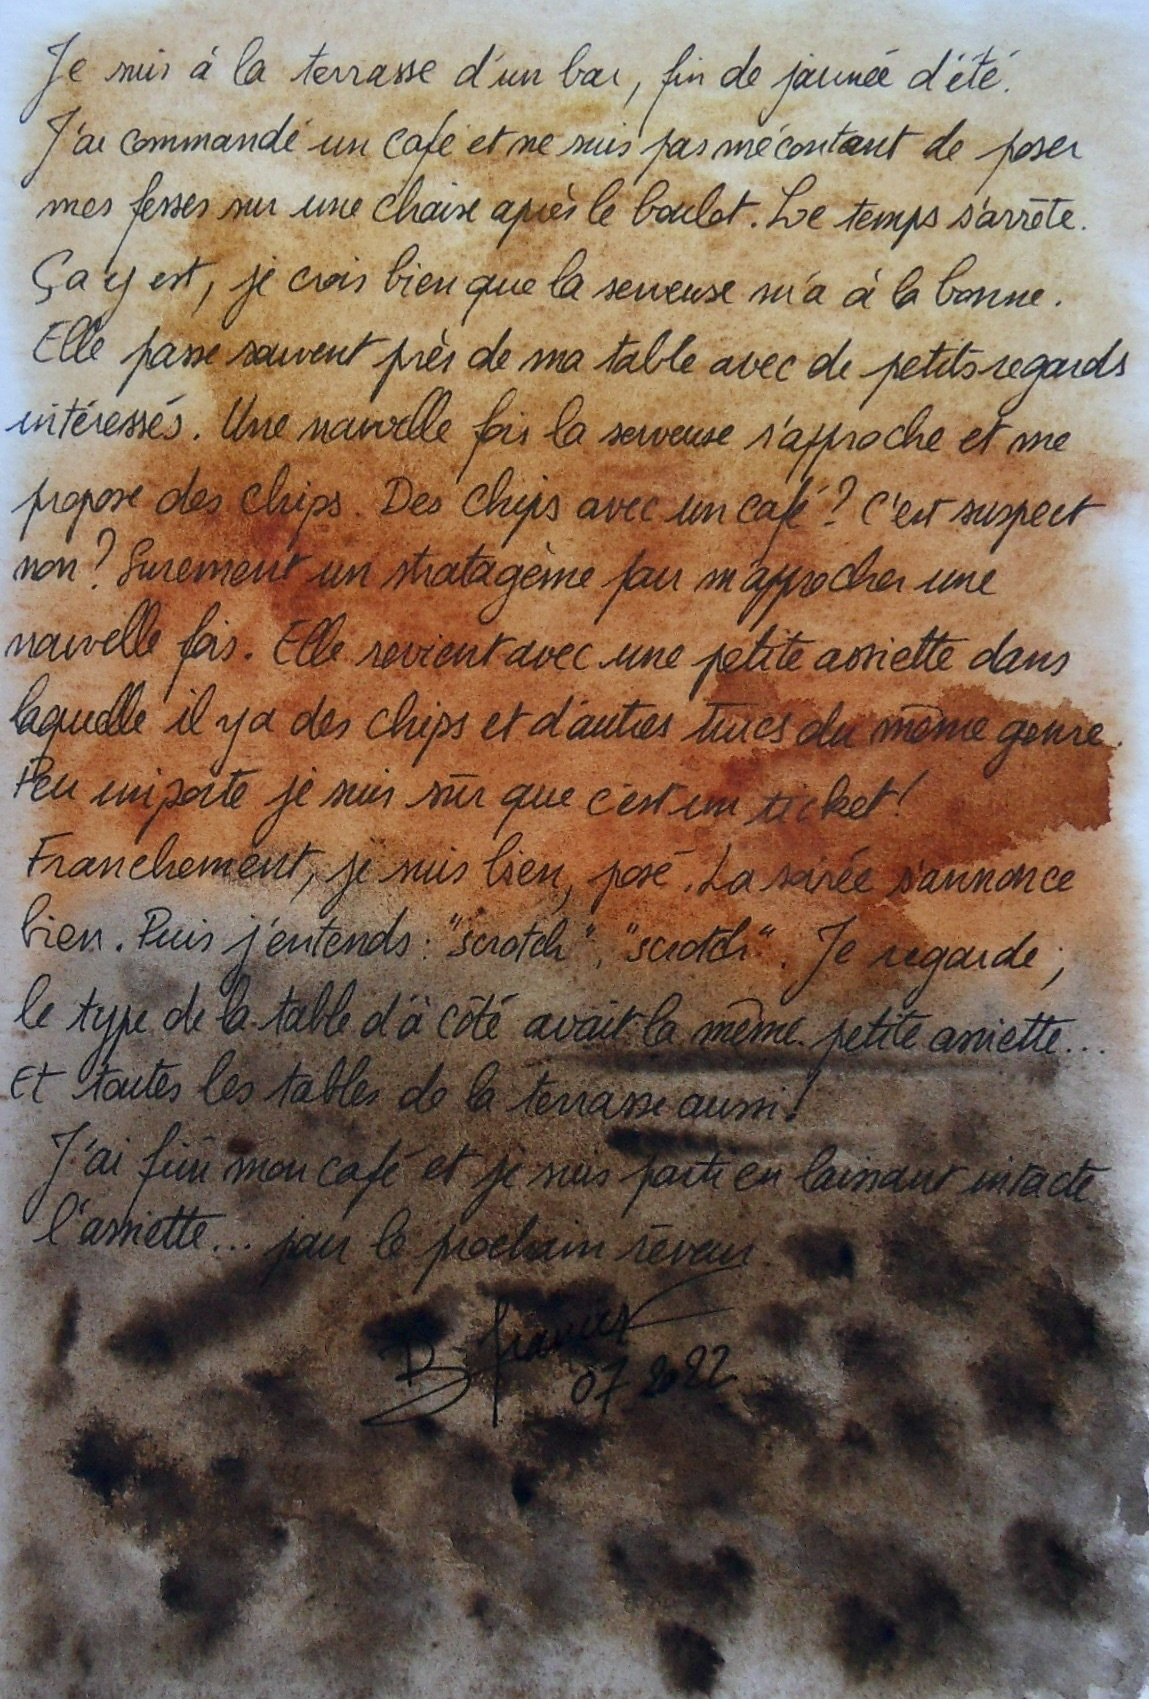 Je suis à la terrasse d'un bar, fin de journée d'été.
J'ai commandé un café et ne suis pas mécontant de poser
mes fesses sur une chaise après le boulot. Le temps s'arrête.
Ça y est, je crois bien que la serveuse m'a à la bonne.
Elle passe souvent près de ma table avec de petits regards
intéressés. Une nouvelle fois la serveuse s'approche et me
propose des chips. Des chips avec un café ? C'est suspect
non ? Surement un stratagème pour m'approcher une
nouvelle fois. Elle revient avec une petite assiette dans
laquelle il y a des chips et d'autres trucs du même genre.
Peu importe je suis sûr que c'est un ticket !
Franchement, je suis bien, posé. La soirée s'annonce
bien. Puis j'entends : "scrotch", "scrotch". Je regarde ;
le type de la table d'à côté avait la même petite assiette...
Et toutes les tables de la terrasse aussi !
J'ai fini mon café et je suis parti en laissant intacte
l'assiette... pour le prochain rêveur.
07 2022